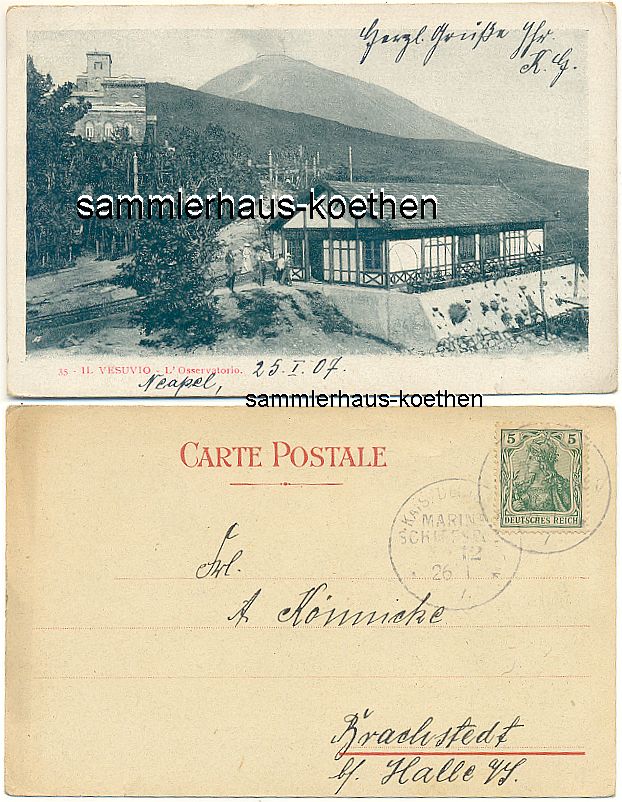 Herzl. Grüße Ihr.
K. G.
sammlerhaus-koethen
35 - IL VESUVIO - L'Osservatorio.
Neapel, 25. I. 07.
sammlerhaus-koethen
CARTE POSTALE
5 5
DEUTSCHES REICH
KAIS. DEU
MARINE
SCHIFFSP
12
26 1
Frl.
A Könnicke
Brachstedt
b/ Halle a/S.